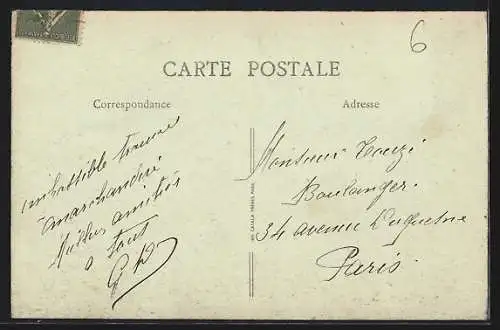 6
CARTE POSTALE
Correspondance
Adresse
impossible
marchandise
Milles amitiés
a tous
G D
Monsieur Touzé
Boulanger
34 avenue Duquesne
Paris